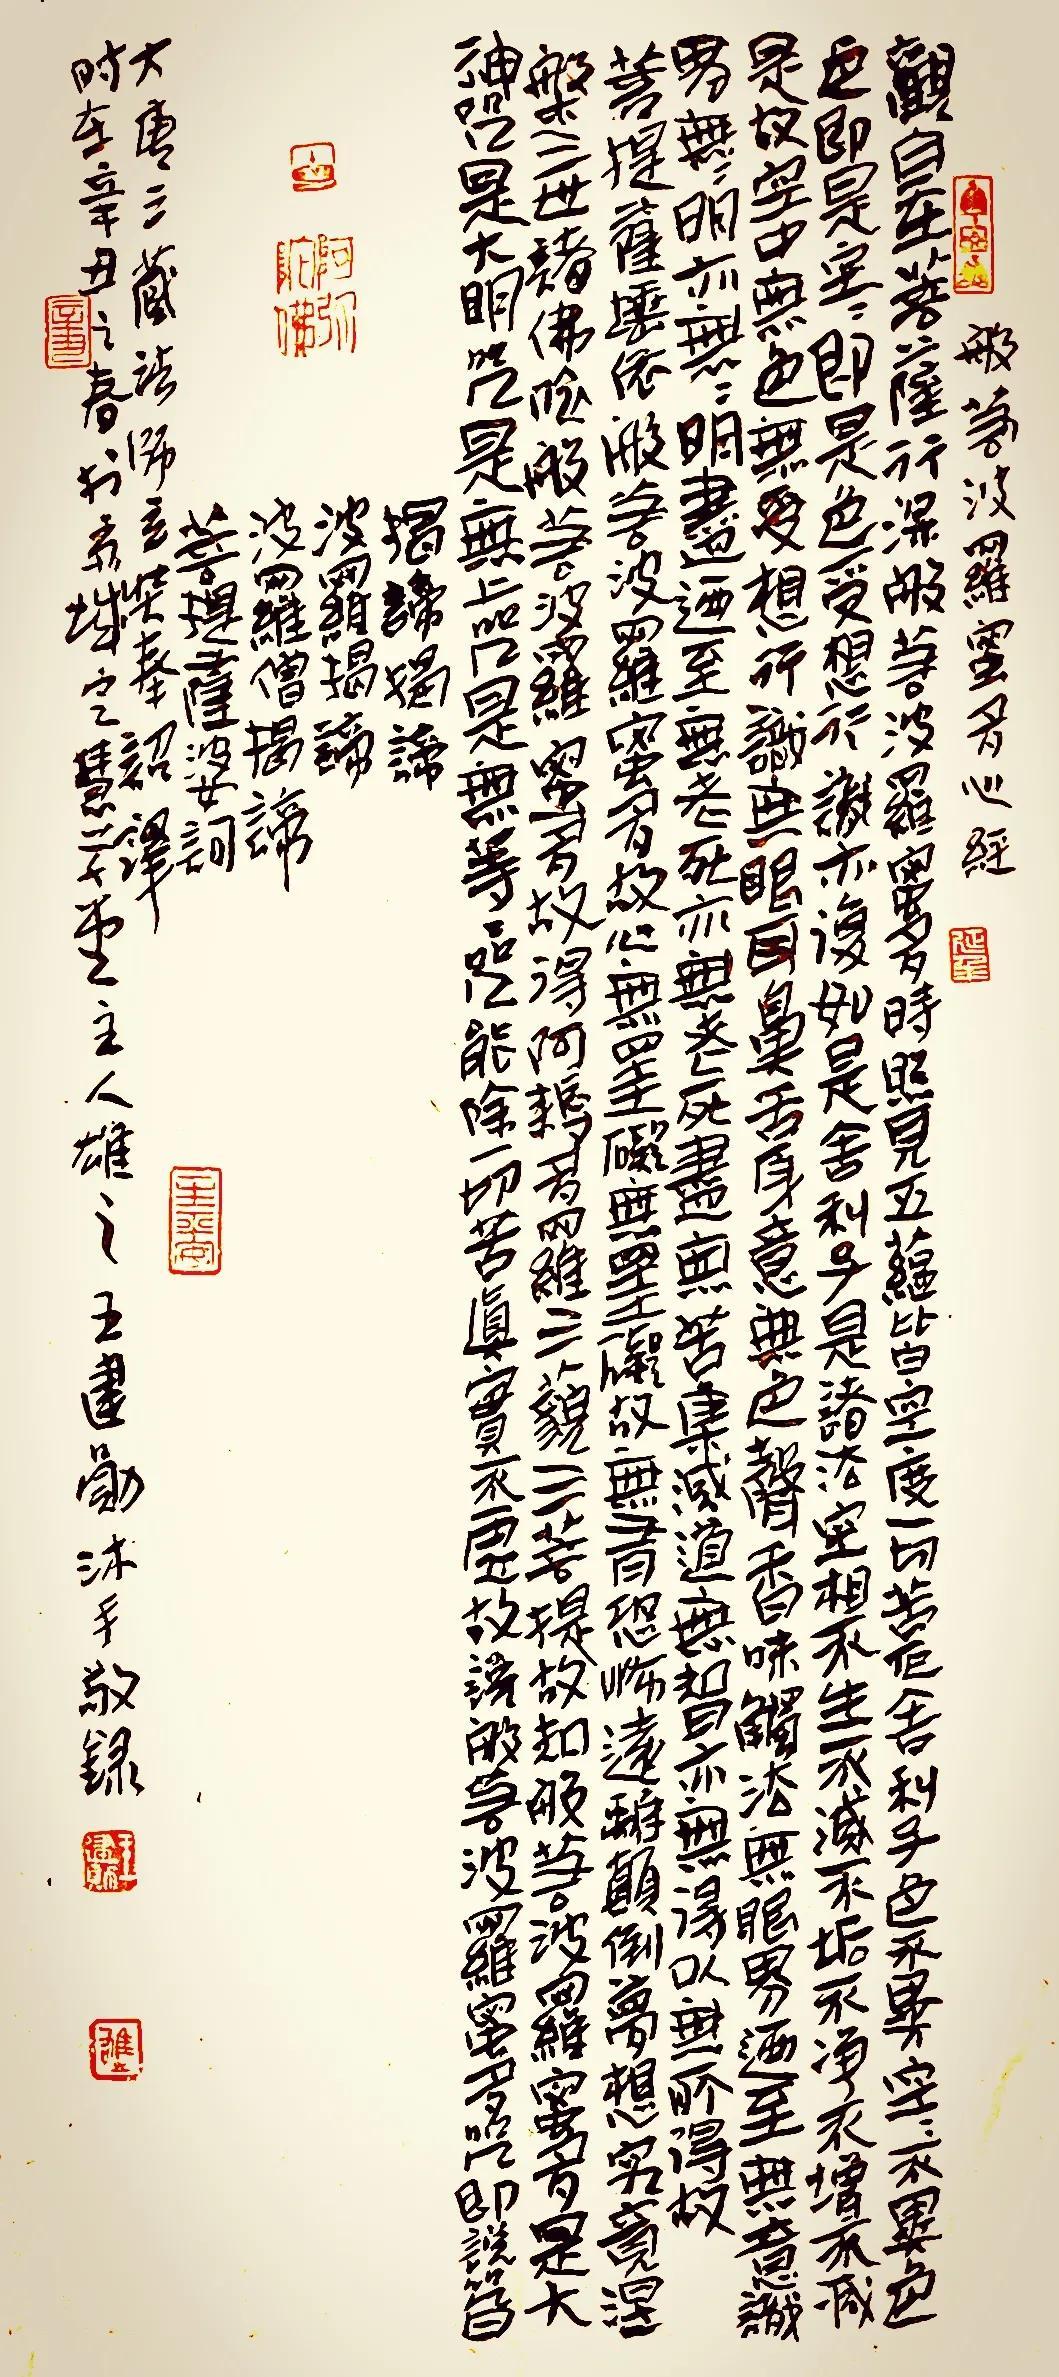 般若波羅蜜多心經
觀自在菩薩行深般若波羅蜜多時照見五蘊皆空度一切苦厄舍利子色不異空〻不異色
色即是空〻即是色受想行識亦復如是舍利子是諸法空相不生不滅不垢不净不增不減
是故空中無色無受想行識無眼耳鼻舌身意無色聲香味觸法無眼界迺至無意識
界無〻明亦無〻明盡迺至無老死亦無老死盡無苦集滅道無智亦無得以無所得故
菩提薩埵依般若波羅蜜多故心無罣礙無罣礙故無有恐怖遠離顛倒夢想究竟涅
槃三世諸佛依般若波羅蜜多故得阿耨多羅三藐三菩提故知般若波羅蜜多是大
神咒是大明咒是無上咒是無等〻咒能除一切苦真實不虛故説般若波羅蜜多咒即説咒曰
揭諦揭諦
波羅揭諦
波羅僧揭諦
菩提薩婆訶
阿弥
陀佛
大唐三藏法師玄奘奉詔譯
时在辛丑之春於京城定慧堂主人雄之王建勛沐手敬録